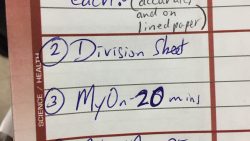 each. (accurate
and on
lined paper)
② Division Sheet
③ MyOn-20 mins
SCIENCE / HEALTH